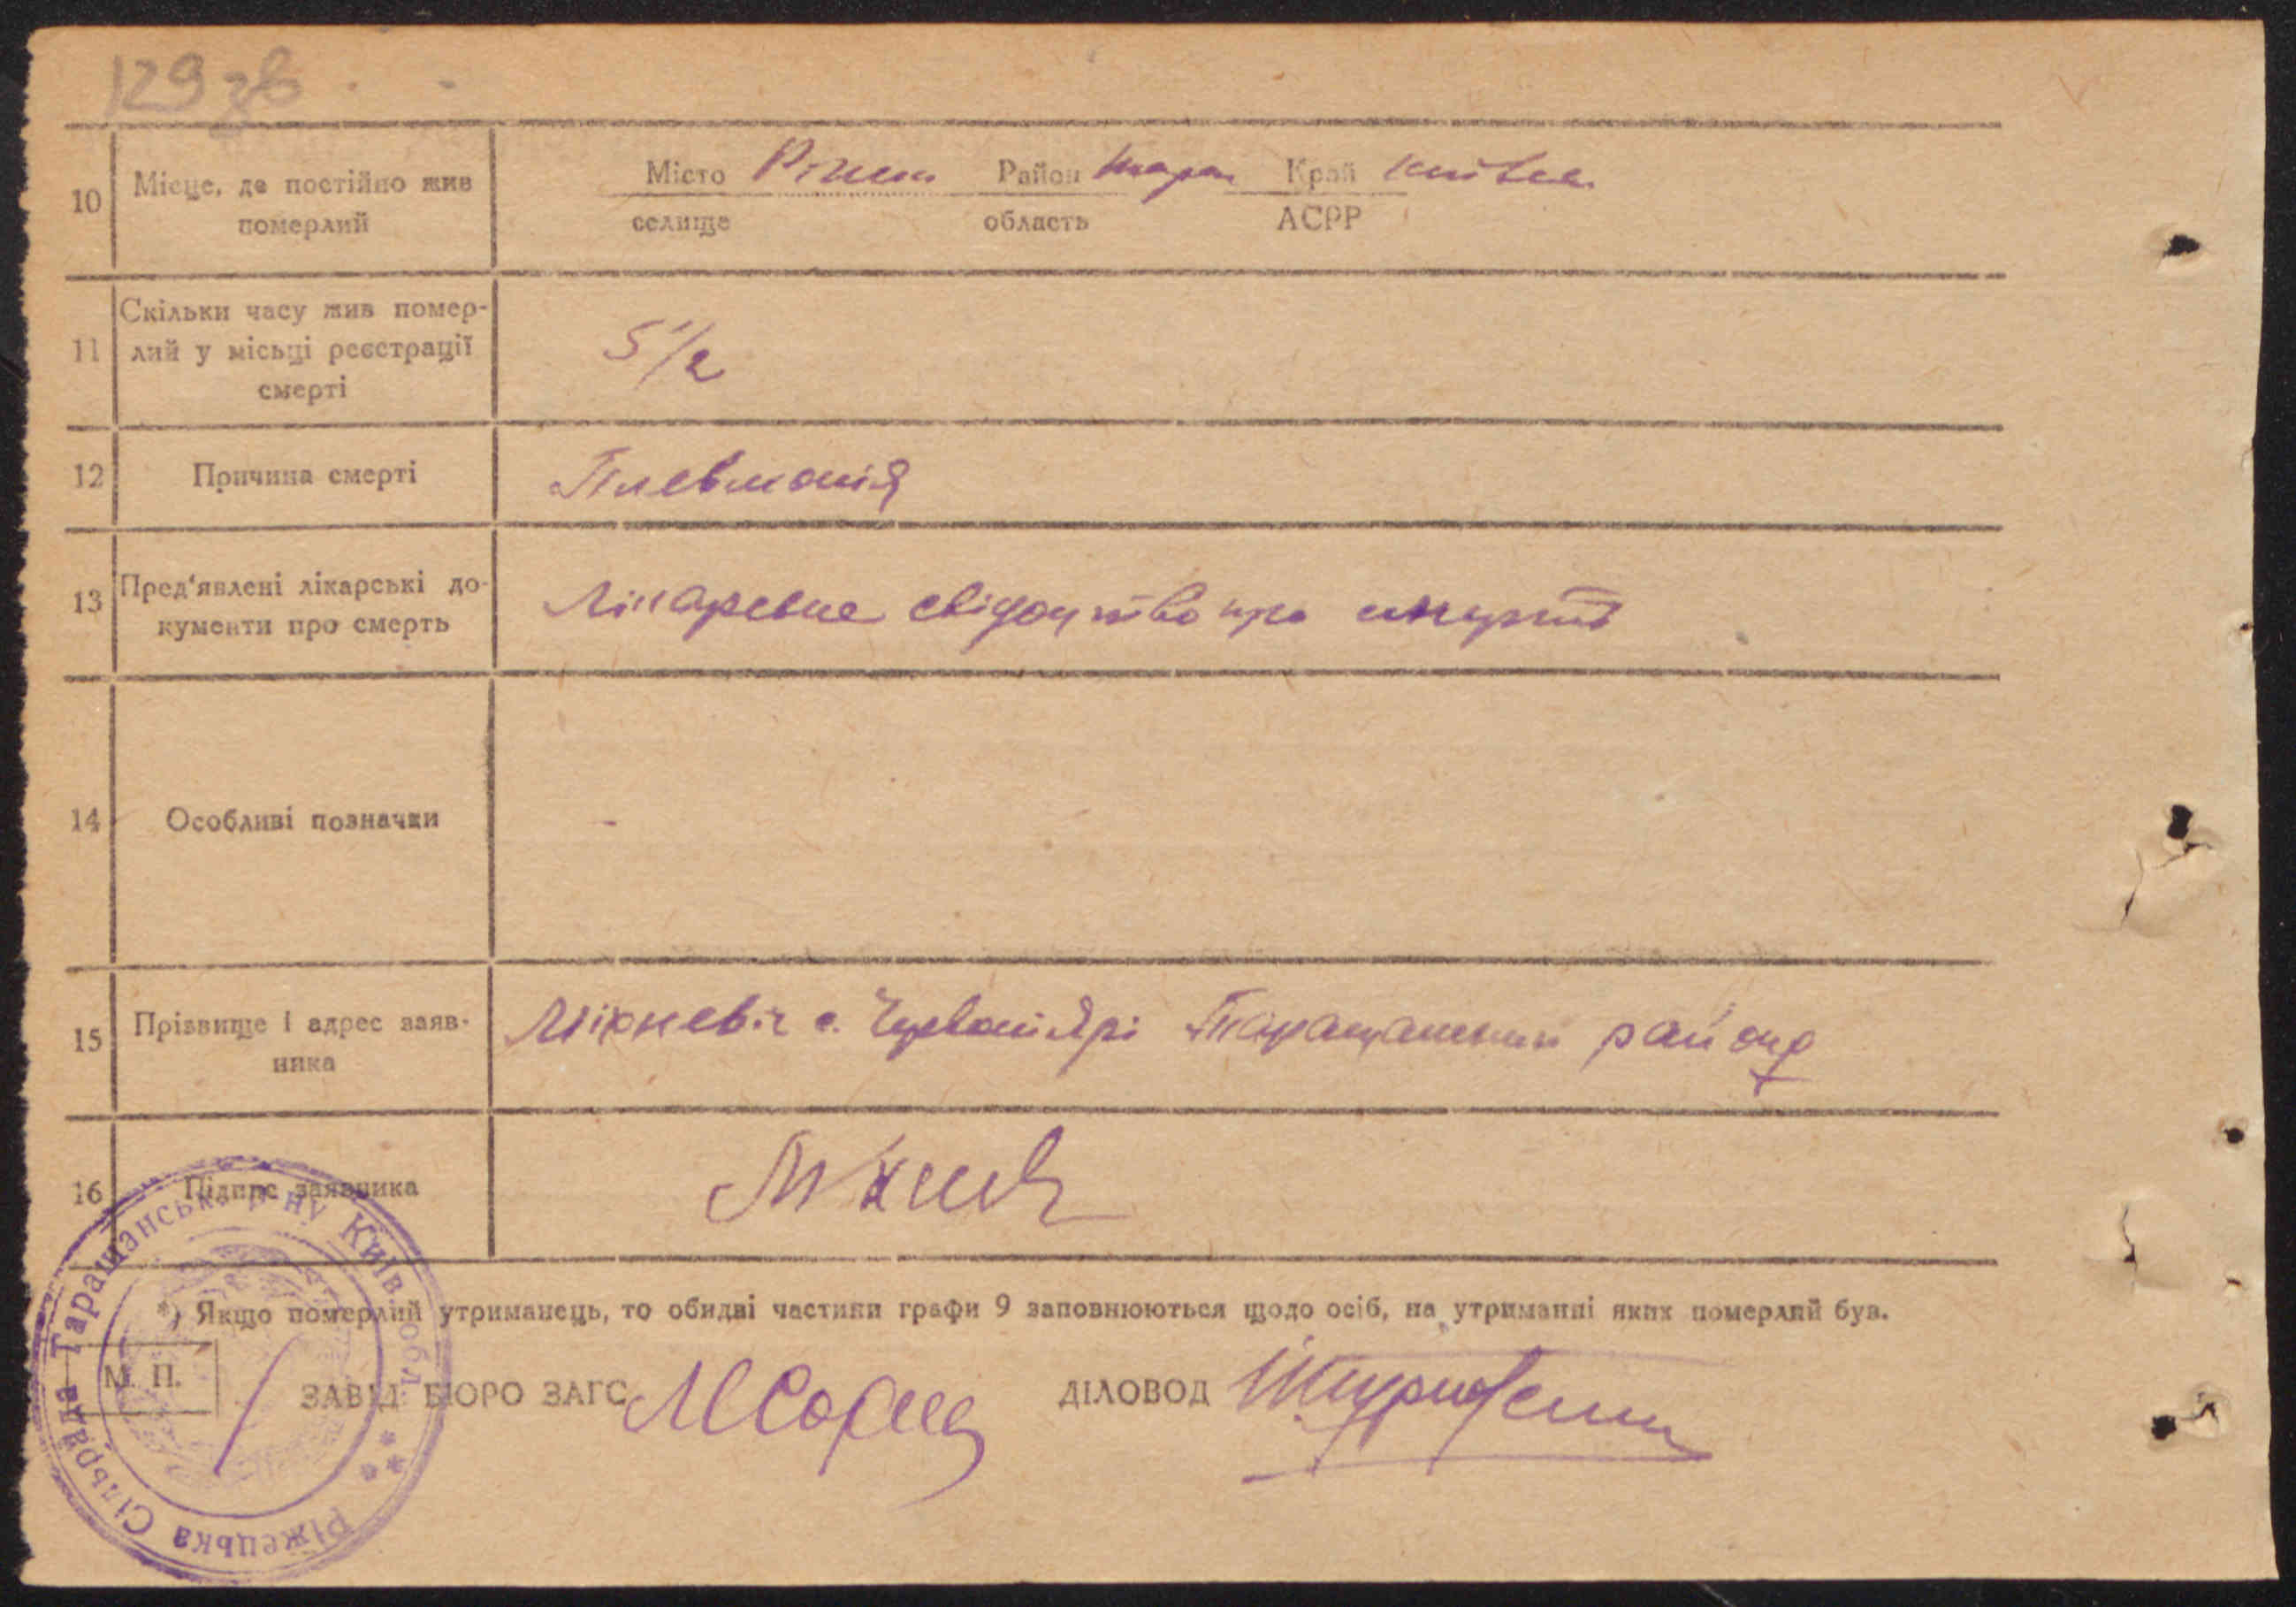 129 зв
10 Місце, де постійно жив померлий
Місто Район Край
селище область АСРР
11 Скільки часу жив помер-
лий у місьці реєстрації
смерті
5 1/2
12 Причина смерті Пневмонія
13 Пред'явлені лікарські до-
кументи про смерть
свідоцтво про смерть
14 Особливі позначки
-
15 Прізвище і адрес заяв-
ника
с. Таращанський району
16 Підпис заявника
*) Якщо померлий утриманець, то обидві частини графи 9 заповнюються щодо осіб, на утриманні яких померлий був.
М. П.
ЗАВІД БЮРО ЗАГС ДІЛОВОД
Ріжецька Сільрада Таращанськ. р-ну Київ. обл.